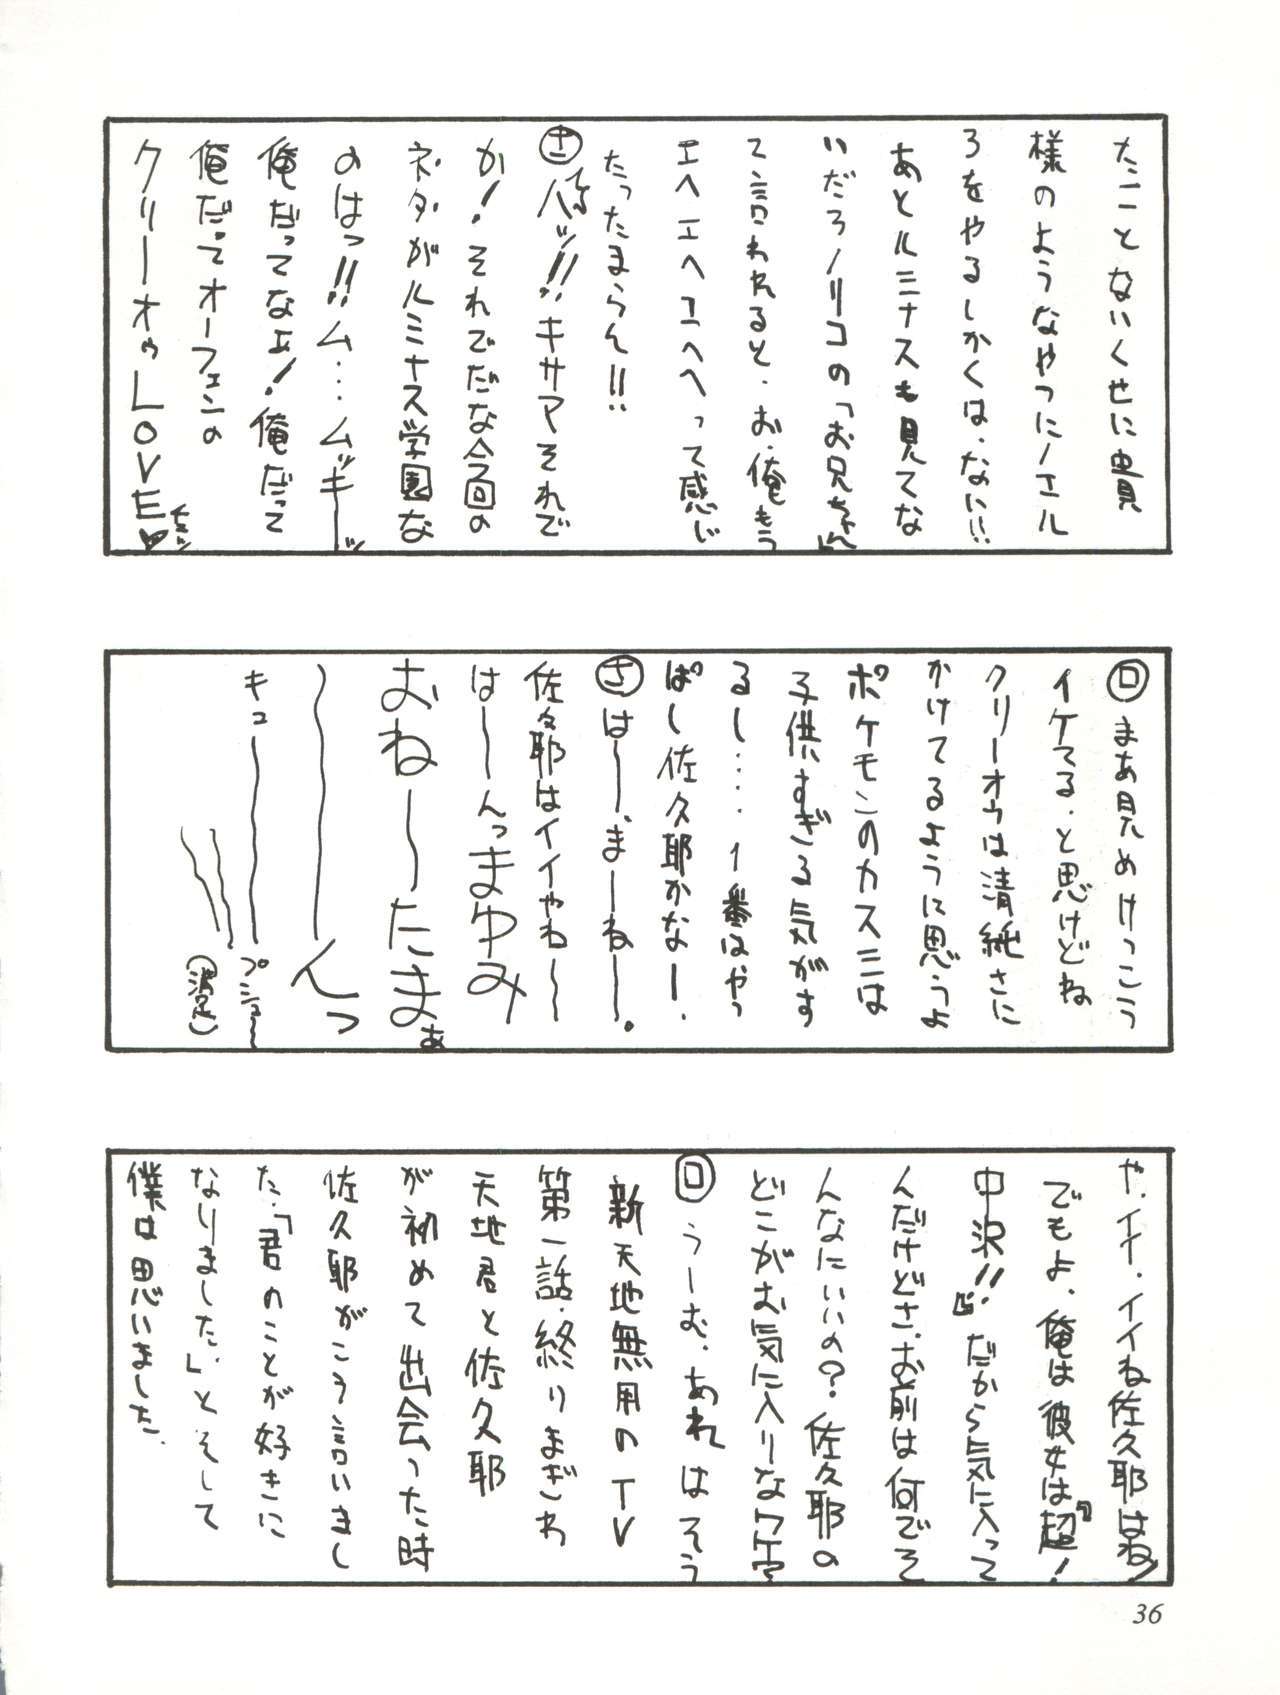 たことないくせに貴
様のようなやつにノエル
ろをやるしかくは、ない!!
あとルミナスも見てな
いだろノリコの「お兄ちゃん」
て言われると、お、俺もう
エヘエヘエヘヘって感じ
たったまらん!!
八ッ!!キサマそれで
か!それでだな今回の
ネタがルミナス学園な
のはっ!!ム…ムッキーッ
俺だってなェ!俺だって
俺だってオーフェンの
クリーオゥLOVE♥
㋺まあ見ためけっこう
イケてる、と思けどね
クリーオウは清純さに
かけてるように思うよ
ポケモンのカスミは
子供すぎる気がす
るし…1番はやっ
ぱし佐久耶かなー、
㋚はー、まーねー。
佐久耶はイイやね〜
は〜んっまゆみ
おね〜たまぁ
〜んっ
キュ〜
プシュ〜
(満足)
や、イイ、イイね佐久耶はね!
でもよ、俺は彼女は『超!
中沢!!』だから気に入って
んだけどさ、お前は何でそ
んなにいいの?佐久耶の
どこがお気に入りなワケ?
㋺うーむ、あれはそう
新天地無用のTV
第一話、終りまぎわ
天地君と佐久耶
が初めて出会った時
佐久耶がこう言いまし
た、「君のことが好きに
なりました、」とそして
僕は思いました、
36